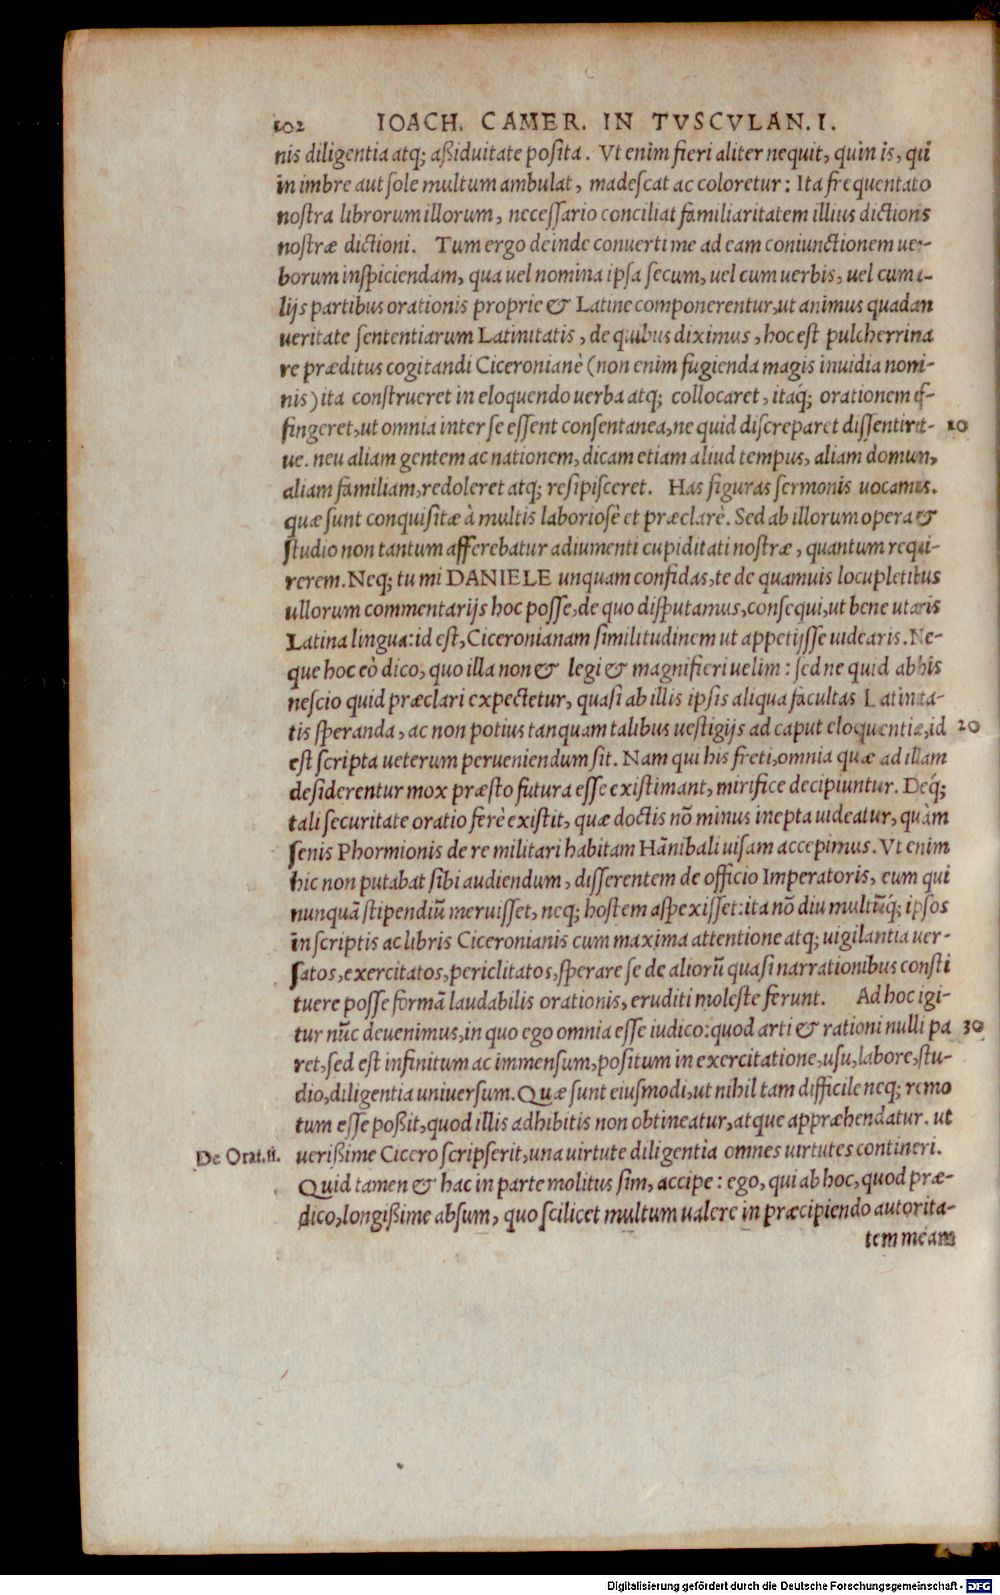 102 IOACH. CAMER. IN TVSCVLAN. I.
nis diligentia atq; aßiduitate posita. Vt enim fieri aliter nequit, quin is, qui
in imbre aut sole multum ambulat, madescat ac coloretur: Ita frequentatio
nostra librorum illorum, necessario conciliat familiaritatem illius dictionis
nostræ dictioni. Tum ergo deinde conuerti me ad eam coniunctionem uer-
borum inspiciendam, qua uel nomina ipsa secum, uel cum uerbis, uel cum a-
lijs partibus orationis proprie & Latine componerentur, ut animus quadam
ueritate sententiarum Latinitatis, de quibus diximus, hoc est pulcherrima
re præditus cogitandi Ciceronianè (non enim fugienda magis inuidia nomi-
nis) ita construeret in eloquendo uerba atq; collocaret, itaq́; orationem ef-
fingeret, ut omnia inter se essent consentanea, ne quid discreparet dissentiret- 10
ue. neu aliam gentem ac nationem, dicam etiam aliud tempus, aliam domum,
aliam familiam, redoleret atq; resipisceret. Has figuras sermonis uocamus.
quæ sunt conquisitæ à multis laboriosè et præclarè. Sed ab illorum opera &
studio non tantum afferebatur adiumenti cupiditati nostræ, quantum requi-
rerem. Neq; tu mi DANIELE unquam confidas, te de quamuis locupletibus
ullorum commentarijs hoc posse, de quo disputamus, consequi, ut bene utaris
Latina lingua: id est, Ciceronianam similitudinem ut appetijsse uidearis. Ne-
que hoc eò dico, quo illa non & legi & magnifieri uelim: sed ne quid ab his
nescio quid præclari expectetur, quasi ab illis ipsis aliqua facultas Latinita-
tis speranda, ac non potius tanquam talibus uestigijs ad caput eloquentiæ, id 20
est scripta ueterum perueniendum sit. Nam qui his freti, omnia quæ ad illam
desiderentur mox præsto futura esse existimant, mirifice decipiuntur. Deq́;
tali securitate oratio ferè existit, quæ doctis nō minus inepta uideatur, quàm
senis Phormionis de re militari habitam Hānibali uisam accepimus. Vt enim
hic non putabat sibi audiendum, disserentem de officio Imperatoris, eum qui
nunquā stipendiū meruisset, neq; hostem aspexisset: ita nō diu multūq́; ipsos
in scriptis ac libris Ciceronianis cum maxima attentione atq; uigilantia uer-
satos, exercitatos, periclitatos, sperare se de aliorū quasi narrationibus consti
tuere posse formā laudabilis orationis, eruditi moleste ferunt. Ad hoc igi-
tur nūc deuenimus, in quo ego omnia esse iudico: quod arti & rationi nulli pa 30
ret, sed est infinitum ac immensum, positum in exercitatione, usu, labore, stu-
dio, diligentia uniuersum. Quæ sunt eiusmodi, ut nihil tam difficile neq; remo
tum esse poßit, quod illis adhibitis non obtineatur, atque appræhendatur. ut
De Orat. ii. uerißime Cicero scripserit, una uirtute diligentia omnes uirtutes contineri.
Quid tamen & hac in parte molitus sim, accipe: ego, qui ab hoc, quod præ-
dico, longißime absum, quo scilicet multum ualere in præcipiendo autorita-
tem meam
Digitalisierung gefördert durch die Deutsche Forschungsgemeinschaft - DFG